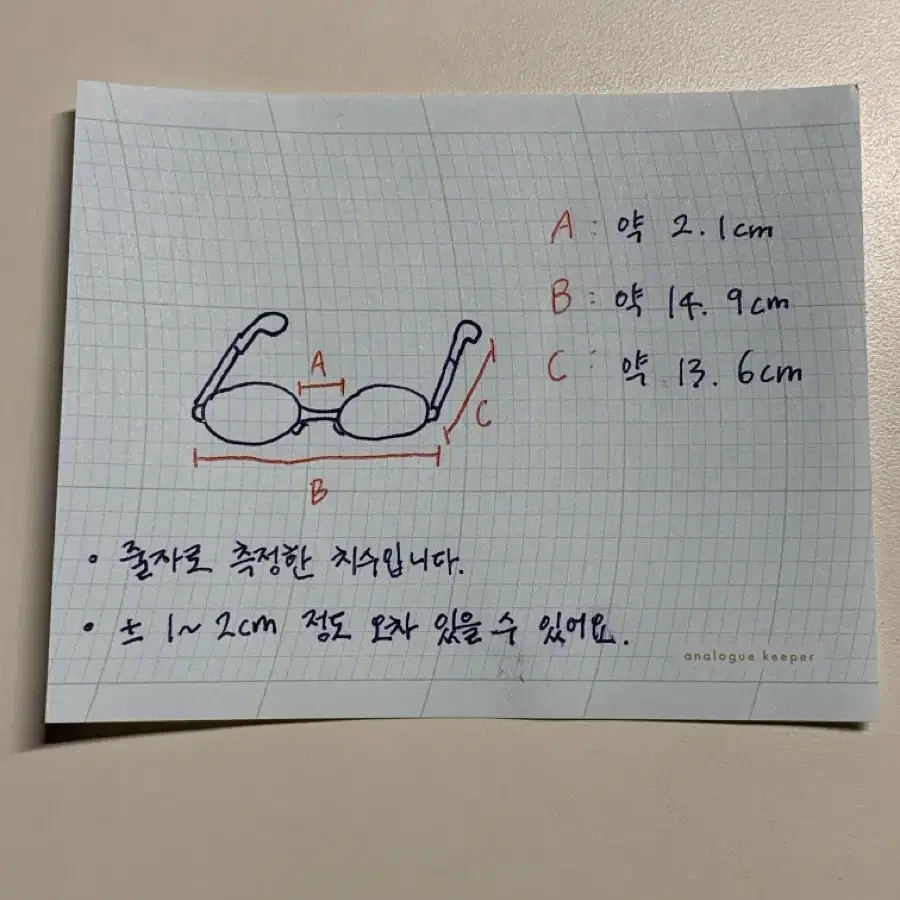 A : 약 2.1cm
B : 약 14.9cm
C : 약 13.6cm
A
C
B
• 줄자로 측정한 치수입니다.
• ± 1~2cm 정도 오차 있을 수 있어요.
analogue keeper